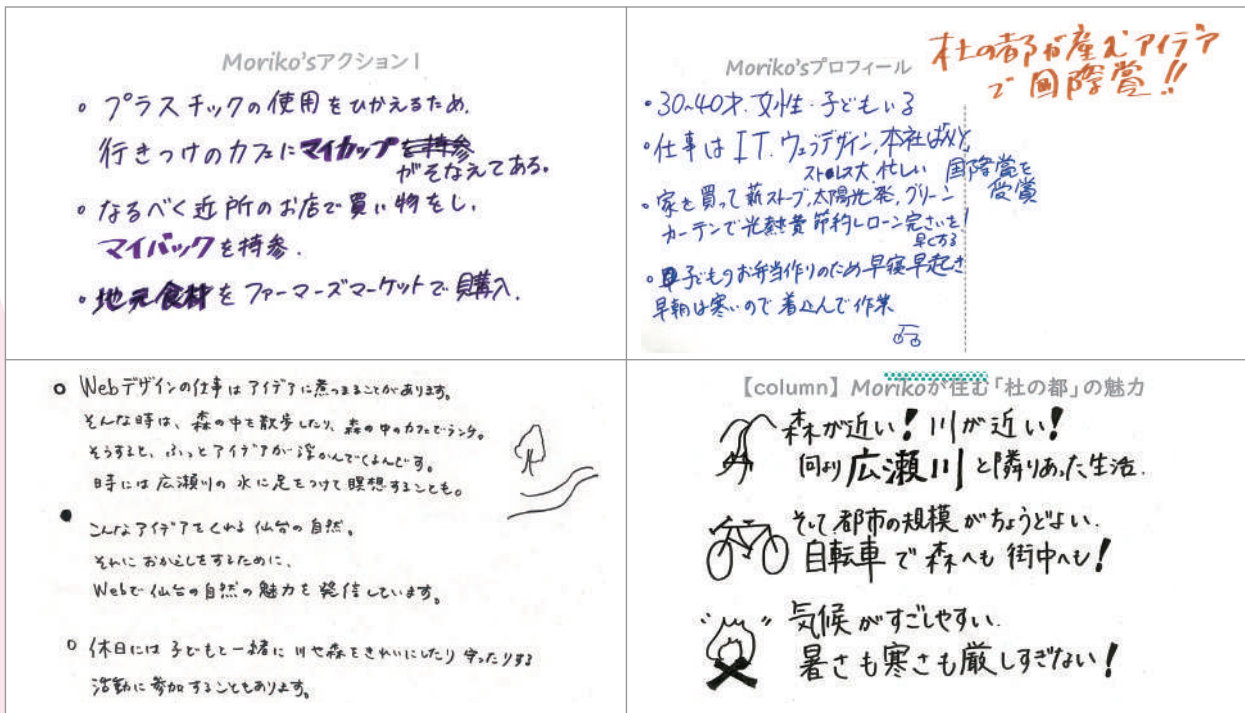 Moriko'sアクション1
• プラスチックの使用をひかえるため、
行きつけのカフェにマイカップを持参
がそなえてある。
• なるべく近所のお店で買い物をし、
マイバックを持参.
• 地元食材をファーマーズマーケットで購入.
Moriko'sプロフィール
杜の都が産むアイデア
で国際賞!!
• 30〜40才.女性・子どもいる
• 仕事はIT.ウェブデザイン,本社はNY,
ストレス大.忙しい
国際賞を
受賞
• 家を買って薪ストーブ,太陽光発,グリーン
カーテンで光熱費節約しローン完さいを
早くする
• 子どものお弁当作りのため早寝早起き
早朝は寒いので着込んで作業
○ Webデザインの仕事はアイデアに煮つまることがあります。
そんな時は、森の中を散歩したり、森の中のカフェでランチ。
そうすると、ふっとアイデアが浮かんでくるんです。
時には広瀬川の水に足をつけて瞑想することも。
● こんなアイデアをくれる仙台の自然。
それにおかえしをするために、
Webで仙台の自然の魅力を発信しています。
○ 休日には子どもと一緒に川や森をきれいにしたり守ったりする
活動に参加することもあります。
【column】Morikoが住む「杜の都」の魅力
森が近い!川が近い!
何より広瀬川と隣りあった生活.
そして都市の規模がちょうどよい.
自転車で森へも街中へも!
気候がすごしやすい.
暑さも寒さも厳しすぎない!